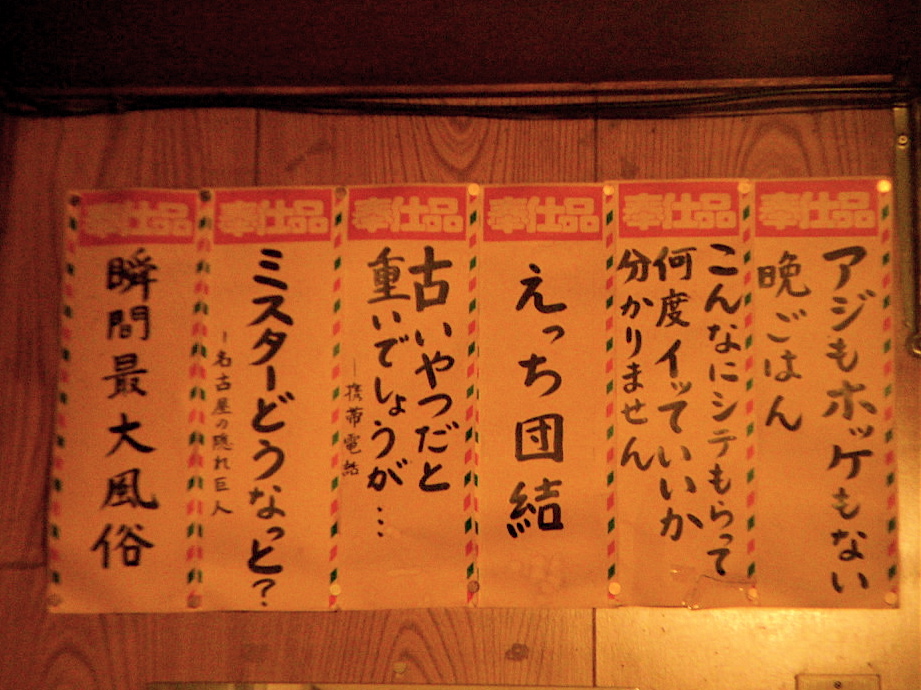 奉仕品
アジもホッケもない
晩ごはん
奉仕品
こんなにシテもらって
何度イッていいか
分かりません
奉仕品
えっち団結
奉仕品
古いやつだと
重いでしょうが…
ー携帯電話
奉仕品
ミスターどうなっと?
ー名古屋の隠れ巨人
奉仕品
瞬間最大風俗